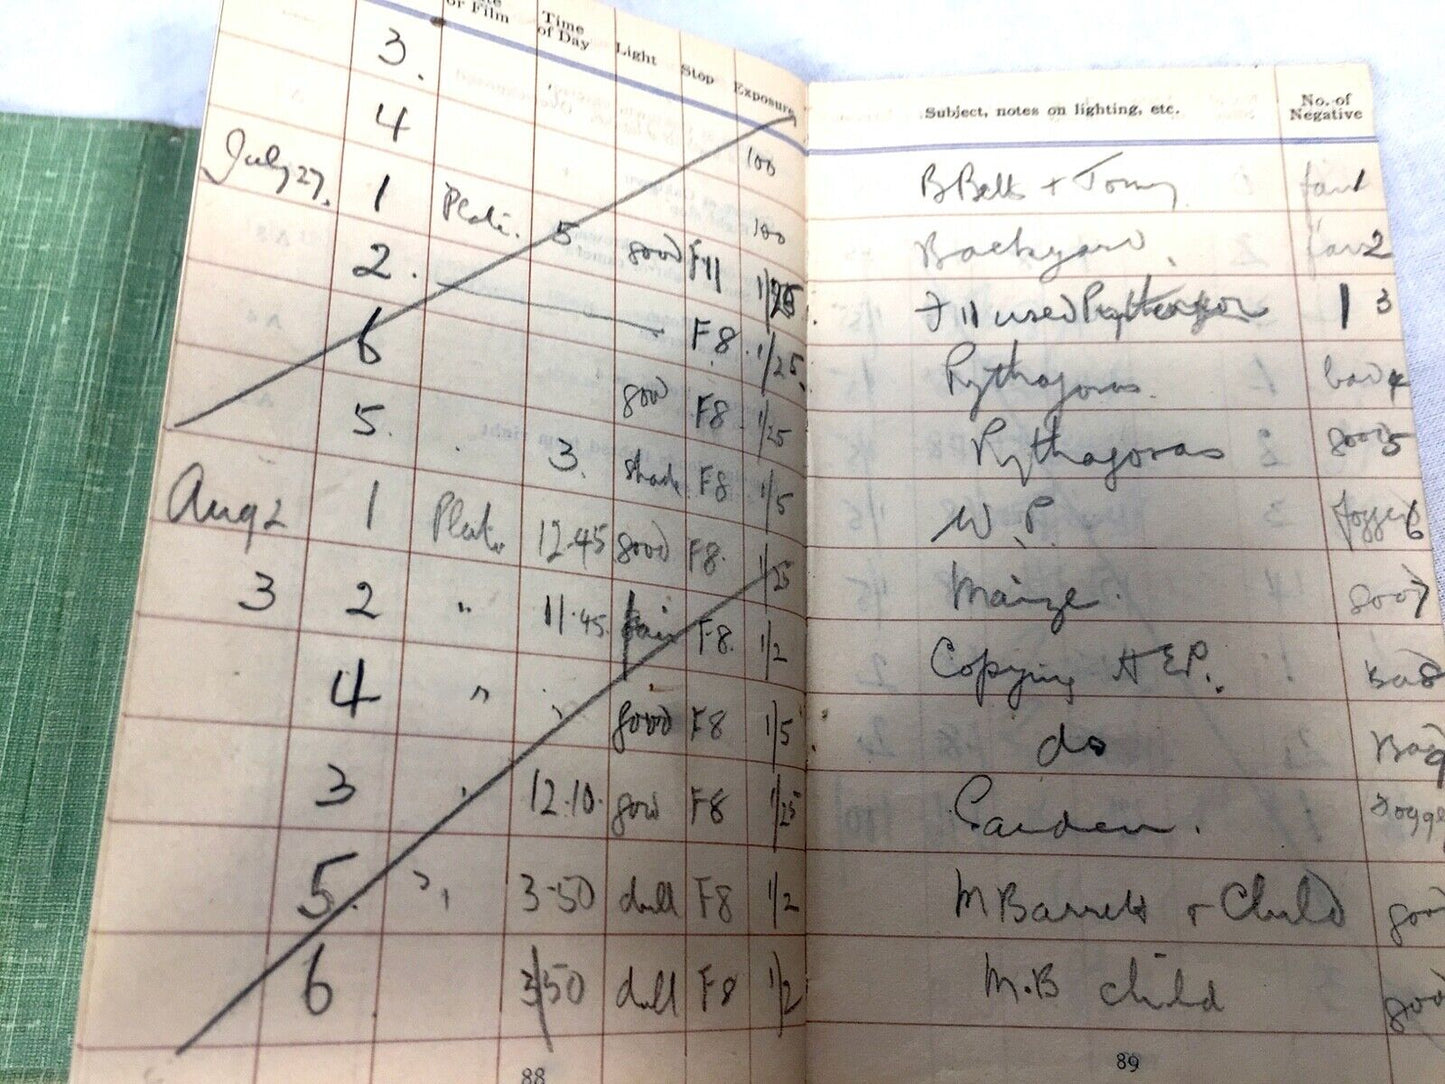 or Film Time of Day Light Stop Exposure Subject, notes on lighting, etc. No. of Negative
3. 100 B Bells + Tony fair 1
4 100 Backyard. fair 2
July 27. 1 Plate. 5 good F11 1/25 F 11 used 1 3
2. F8 1/25 Pythagoras. bad 4
6 good F8 1/25 Pythagoras good 5
5. 3. shade F8 1/5 W.P. 6
Aug 2 1 Plate 12.45 good F8. 1/25 Maize. good 7
3 2 " 11.45 fair F8. 1/2 Copying H E P. Bad 8
4 " " good F8 1/5 do Bad 9
3 " 12.10. good F8 1/25 Garden.
5. " 3-50 dull F8 1/2 M Barrett + Child good
6 3/50 dull F8 1/2 M.B child good
88 89